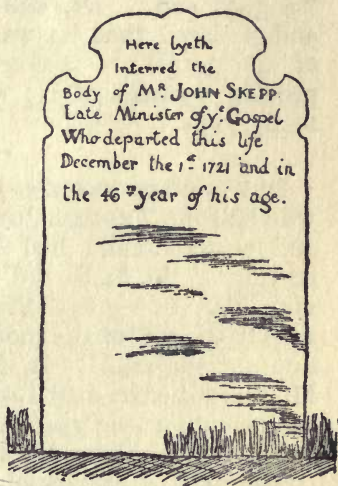 Here lyeth
Interred the
Body of Mʀ JOHN SKEPP
Late Minister of yᵉ Gospel
Who departed this life
December the 1ˢᵗ 1721 and in
the 46ᵗʰ year of his age.